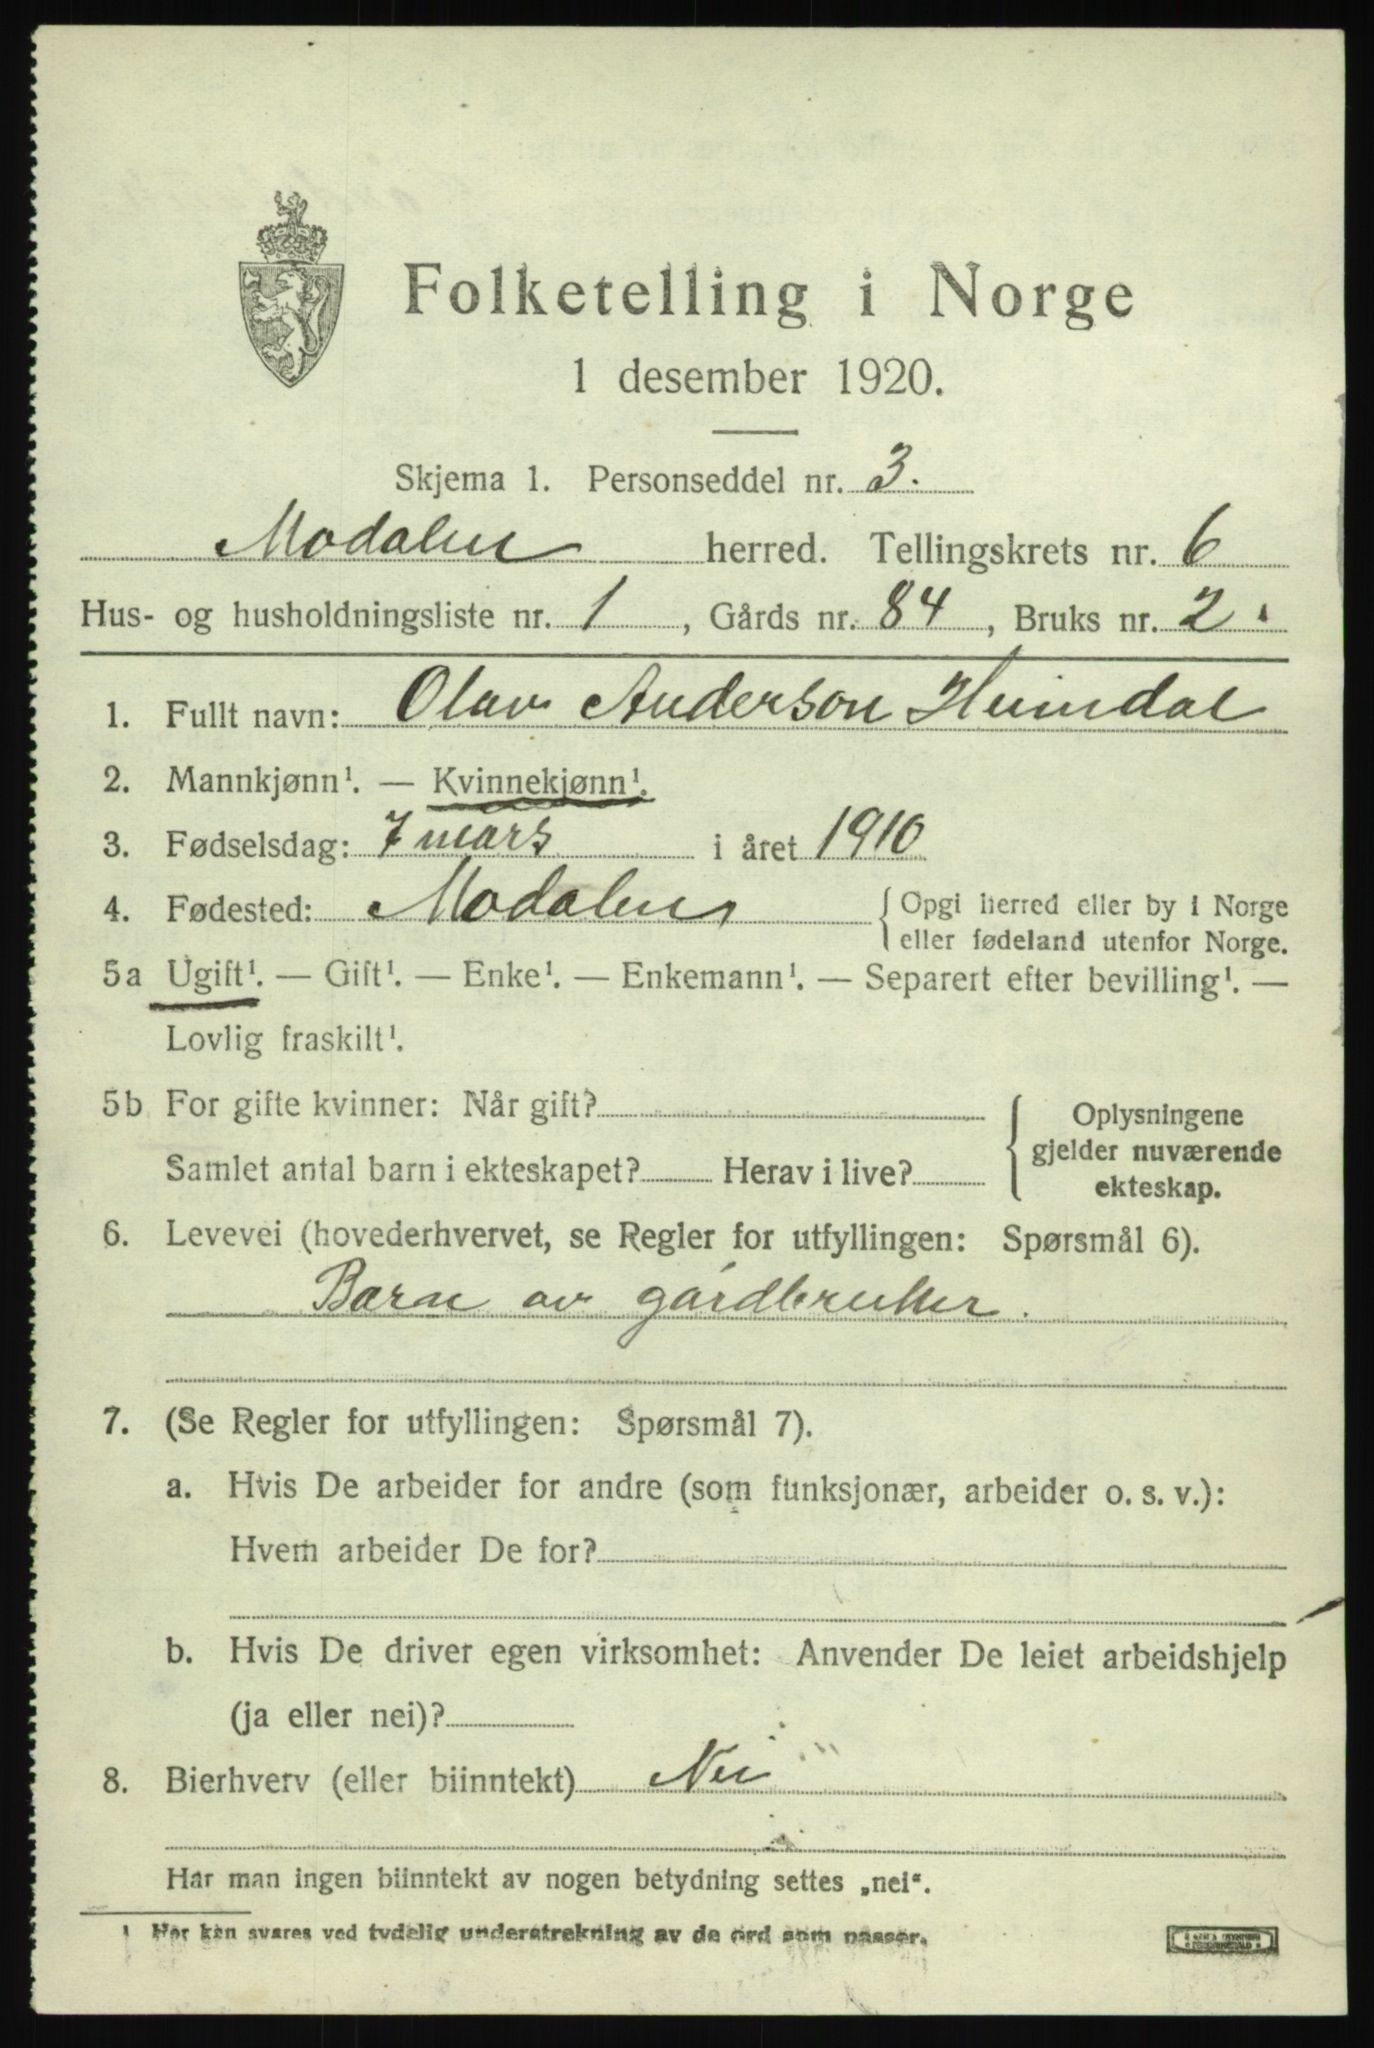 Folketelling i Norge
1 desember 1920.
Skjema 1. Personseddel nr. 3.
Modalen herred. Tellingskrets nr. 6
Hus- og husholdningsliste nr. 1, Gårds nr. 84, Bruks nr. 2
1. Fullt navn: Olav Anderson
2. Mannkjønn¹. — Kvinnekjønn¹.
3. Fødselsdag: 7 mars i året 1910
4. Fødested: Modalen { Opgi herred eller by i Norge
eller fødeland utenfor Norge.
5a Ugift¹. — Gift¹. — Enke¹. — Enkemann¹. — Separert efter bevilling¹. —
Lovlig fraskilt¹.
5b For gifte kvinner: Når gift?
Samlet antal barn i ekteskapet? Herav i live?
Oplysningene
gjelder nuværende
ekteskap.
6. Levevei (hovederhvervet, se Regler for utfyllingen: Spørsmål 6).
Barn av gårdbruker.
7. (Se Regler for utfyllingen: Spørsmål 7).
a. Hvis De arbeider for andre (som funksjonær, arbeider o. s. v.):
Hvem arbeider De for?
b. Hvis De driver egen virksomhet: Anvender De leiet arbeidshjelp
(ja eller nei)?
8. Bierhverv (eller biinntekt) Nei
Har man ingen biinntekt av nogen betydning settes „nei“.
¹ Her kan svares ved tydelig understrekning av de ord som passer.